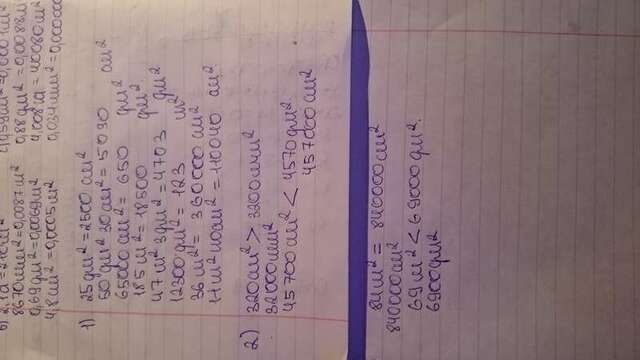 8670мм²=0,0087м² 0,88дм²=0,0088м²
0,69дм²=0,0069м² 4,008га=40080м²
4,8см²=0,0005м²
1) 25дм²=2500 см²
50 дм² 30см²=5030 см²
65000см²= 650 дм²
185м²=18500 дм²
47м² 3дм²=4703 дм²
12300дм²=123 м²
36м²= 360000 см²
11м²40см²=110040 см²
2) 320см²>3200мм²
32000мм²
45700см²< 4570дм²
457000см²
84м²= 840000см²
840000см²
69м²<69000дм²
6900дм²